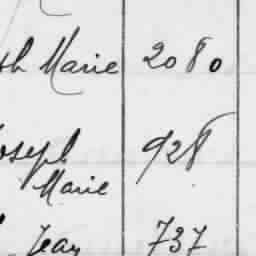 th Marie 2080
Joseph 928
Marie
Jean 737